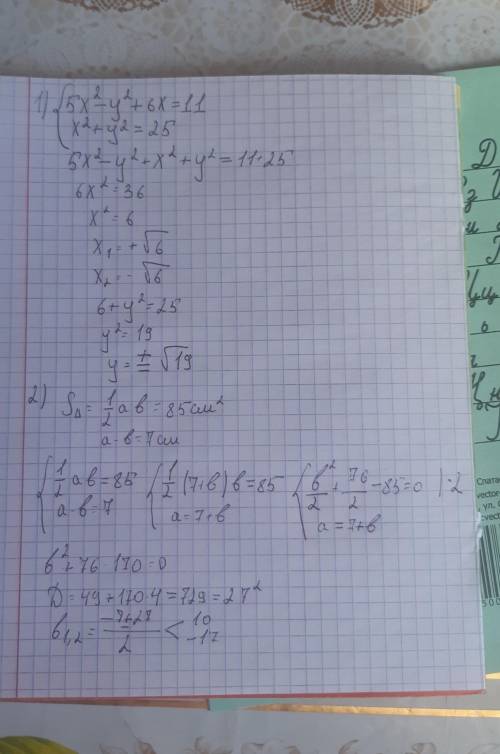 1) { 5x² - y² + 6x = 11
x² + y² = 25
5x² - y² + x² + y² = 11 + 25
6x² = 36
x² = 6
x₁ = + √6
x₂ = - √6
6 + y² = 25
y² = 19
y = ± √19
2) S△ = 1/2 a b = 85 см²
a - b = 7 см
{ 1/2 a b = 85 { 1/2 (7+b) b = 85 { b²/2 + 7b/2 - 85 = 0 | · 2
a - b = 7 a = 7 + b a = 7 + b
b² + 7b - 170 = 0
D = 49 + 170 · 4 = 729 = 27²
b₁,₂ = (-7±27)/2 < 10
-17